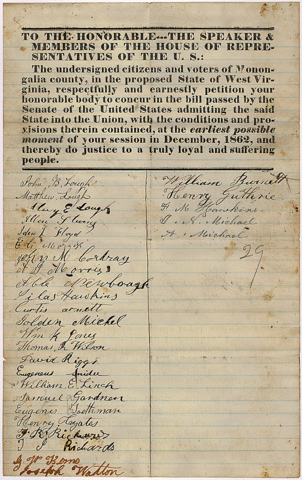 TO THE HONORABLE---THE SPEAKER &
MEMBERS OF THE HOUSE OF REPRE-
SENTATIVES OF THE U. S.:
The undersigned citizens and voters of Monon-
galia county, in the proposed State of West Vir-
ginia, respectfully and earnestly petition your
honorable body to concur in the bill passed by the
Senate of the United States admitting the said
State into the Union, with the conditions and pro-
visions therein contained, at the earliest possible
moment of your session in December, 1862, and
thereby do justice to a truly loyal and suffering
people.
John B. Lough
Matthew Lough
Lough
John Floyd
John M Cordray
A J Morris
Able Newbraugh
Silas Hawkins
Curtis arnett
Golden Michel
Wm K Jones
Thomas R Wilson
David Riggs
Eugeneus Snider
William E. Linch
Samuel Gardner
Eugenis
Henry
Richards
Richards
Joseph Watton
William Burnett
Henry Guthrie
F. M. Hawkins
A. Michael
A. Michael
29